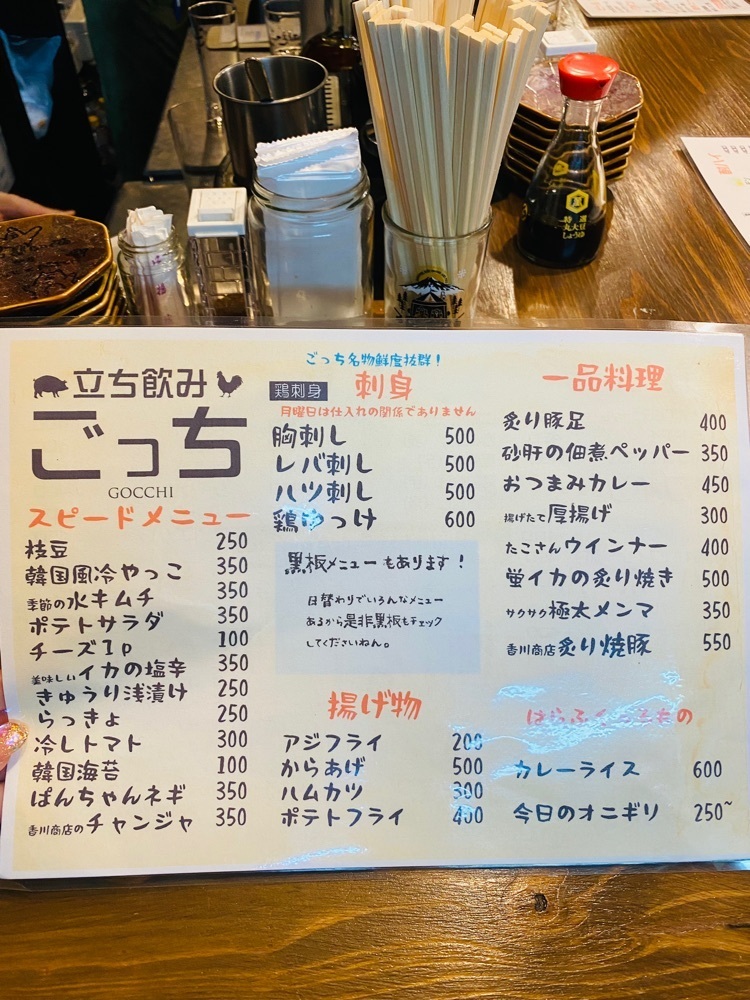 特選
丸大豆
しょうゆ
立ち飲み
ごっち
GOCCHI
スピードメニュー
枝豆 250
韓国風冷やっこ 350
季節の水キムチ 350
ポテトサラダ 350
チーズ1p 100
美味しいイカの塩辛 350
きゅうり浅漬け 250
らっきょ 250
冷しトマト 300
韓国海苔 100
ぱんちゃんネギ 350
香川商店のチャンジャ 350
ごっち名物鮮度抜群!
鶏刺身 刺身
月曜日は仕入れの関係でありません
胸刺し 500
レバ刺し 500
ハツ刺し 500
鶏ゆっけ 600
黒板メニューもあります!
日替わりでいろんなメニュー
あるから是非黒板もチェック
してくださいねん。
揚げ物
アジフライ 200
からあげ 500
ハムカツ 300
ポテトフライ 400
一品料理
炙り豚足 400
砂肝の佃煮ペッパー 350
おつまみカレー 450
揚げたて厚揚げ 300
たこさんウインナー 400
蛍イカの炙り焼き 500
サクサク極太メンマ 350
香川商店炙り焼豚 550
はらふくるもの
カレーライス 600
今日のオニギリ 250~